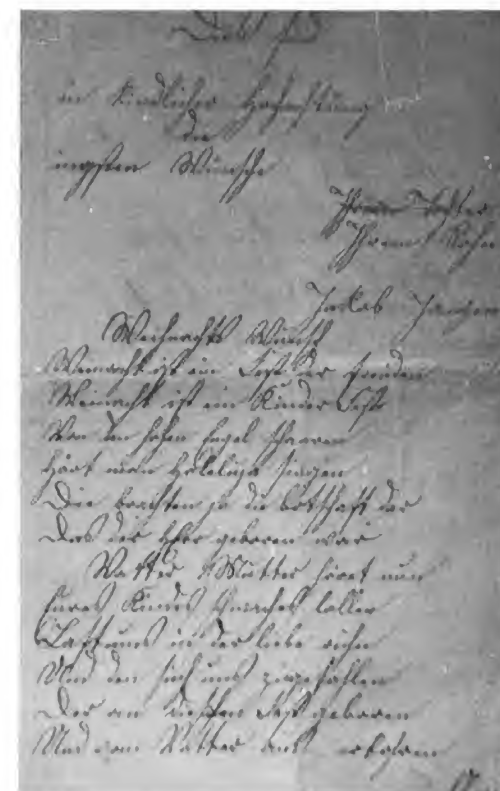 Dies sind
in Kindlicher Hochachtung
die
ingsten Wünsche
Ihrem
Ihrem Sohn
Jackob Janzen
Weihnachts Wunsch
Weinacht ist ein Fest der freuden
Weinacht ist ein Kinder Fest
Von den hohen Engel Scharen
Hört man Haleluja singen
Die brachten ja die botschaft dar
Das der Herr geboren war
Vatter Mutter höret nun
Eures Kindes schwaches lallen
Lasst uns in der liebe ruhn
Und den sich uns
Der am diesen Fest geboren
Und vom Vatter aus erkohren